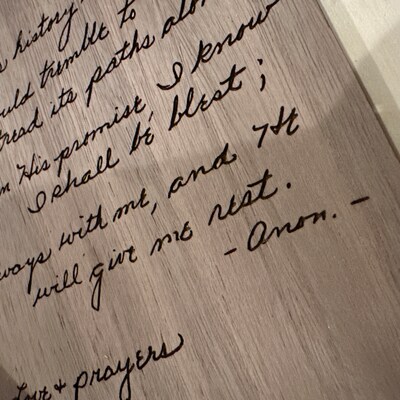 history,
would tremble to
tread its paths alone
His promise, I know
I shall be blest;
always with me, and He
will give me rest.
- Anon. -
Love + prayers